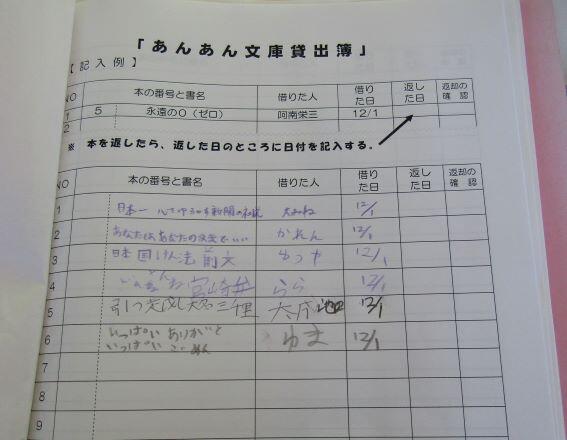 「あんあん文庫貸出簿」
【記入例】
NO 本の番号と書名 借りた人 借りた日 返した日 返却の確認
1 5 永遠の0(ゼロ) 阿南栄三 12/1
2
※ 本を返したら、返した日のところに日付を記入する。
NO 本の番号と書名 借りた人 借りた日 返した日 返却の確認
1 日本一 心を 新聞の社説 12/1
2 あなたは、あなたの でいい かれん 12/1
3 日本国けん法前文 ゆうや 12/1
4 宮崎弁 らら 12/1
5 引っ 大名三千里 大成 12/1
6 いっぱいありがと
いっぱいごめん ゆま 12/1
7
8
9